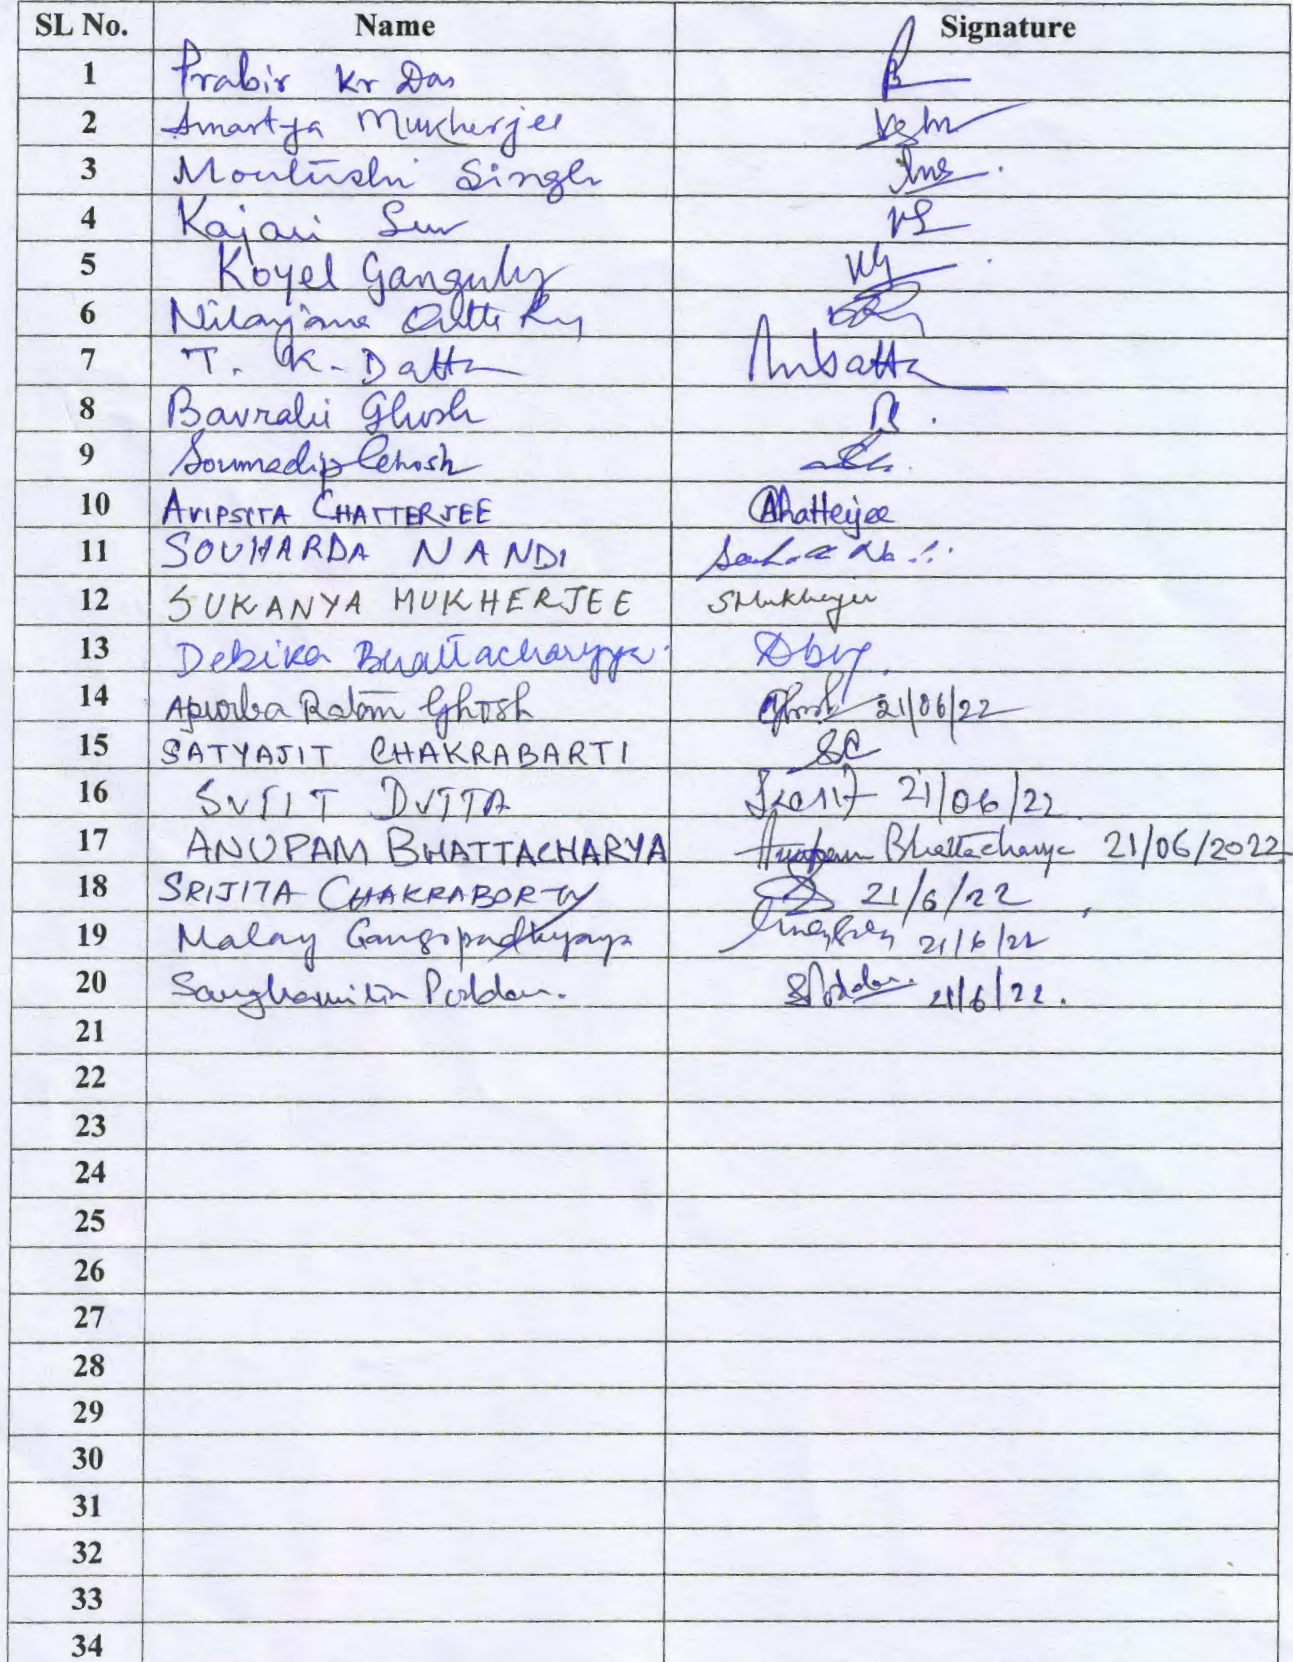 SL No. Name Signature
1 Prabir Kr Das
2 Amartya Mukherjee
3 Moutushi Singh
4 Kajari Sur KS
5 Koyel Ganguly KG
6 Nilanjana
7 T. K. Datta
8 Bavrabi Ghosh
9 Soumadip Ghosh
10 AVIPSITA CHATTERJEE AChatterjee
11 SOUHARDA NANDI
12 SUKANYA MUKHERJEE SMukherjee
13 Debika Bhattacharyya
14 Apurba Ratan Ghosh Ghosh 21/06/22
15 SATYAJIT CHAKRABARTI SC
16 SUJIT DUTTA 21/06/22
17 ANUPAM BHATTACHARYA Anupam Bhattacharya 21/06/2022
18 SRIJITA CHAKRABORTY 21/6/22
19 Malay Gangopadhyaya 21/6/22
20 Sanghamitra Poddar. SPoddar. 21/6/22.
21
22
23
24
25
26
27
28
29
30
31
32
33
34